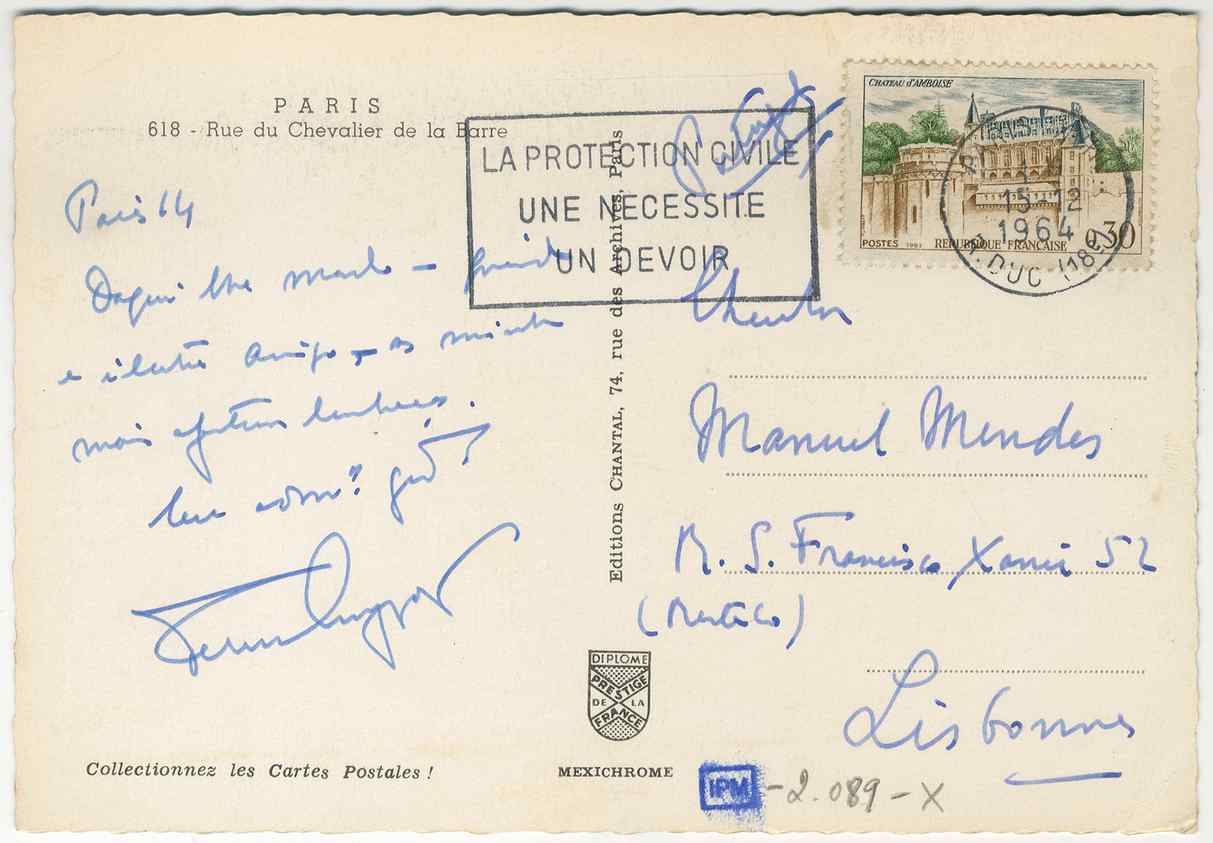 PARIS
618 - Rue du Chevalier de la Barre
Paris 64
Daqui lhe mando -
e ilustre Amigo - as minhas
mais afectuosas lembranças.
Collectionnez les Cartes Postales !
Editions CHANTAL, 74, rue des Archives, Paris
DIPLOME
PRESTIGE
DE LA
FRANCE
MEXICHROME
LA PROTECTION CIVILE
UNE NECESSITE
UN DEVOIR
CHATEAU d'AMBOISE
15-12
1964
DUC (18e)
0,30
POSTES 1963 REPUBLIQUE FRANÇAISE
Portugal
Manuel Mendes
R. S. Francisco Xavier 52
(Restelo)
Lisbonne
IPM -2.089-X